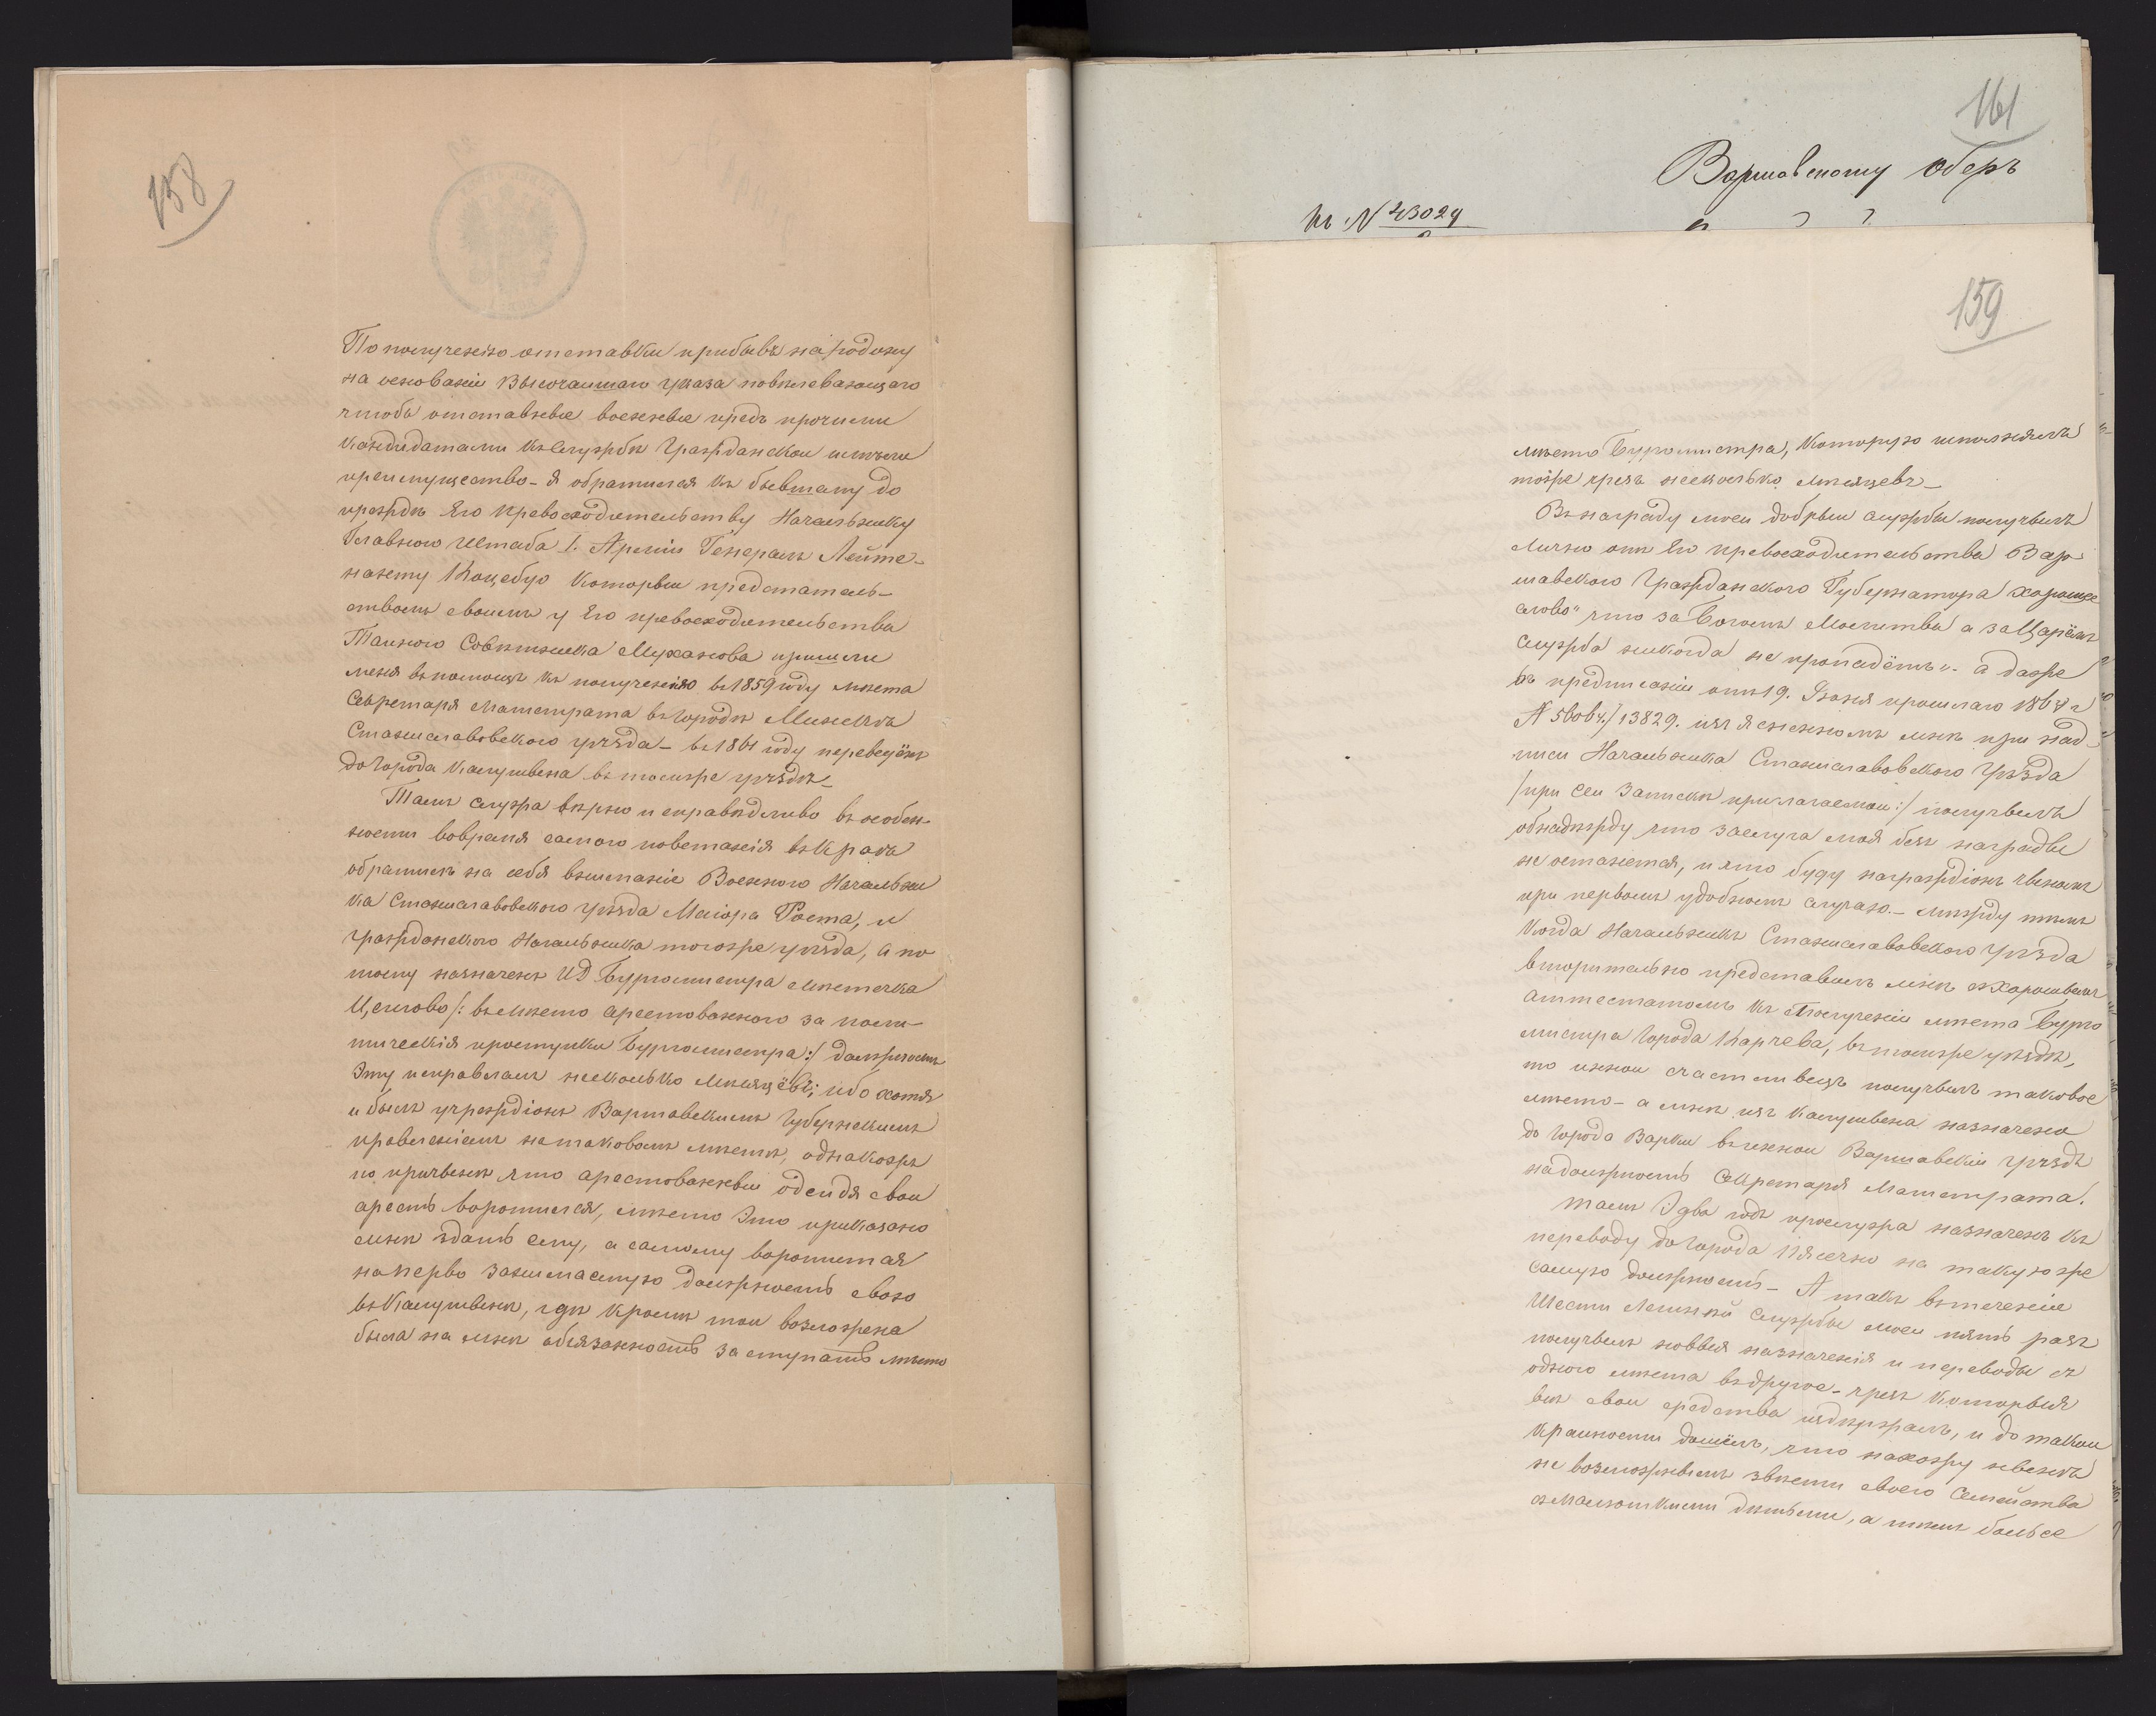 158
По получению отставки прибывъ на родину
на основаніи Высочаишаго указа повѣлевающаго
чтобы отставные военные предъ прочими
Кандидатами къ Службѣ Гражданскои имѣли
преимущество - я обратился къ бывшему до
преждѣ Его превосходительству Начальнику
Главного Штаба 1. Арміи Генералъ Лейте-
нанту Коцебую которыи предстатель-
ствомъ своимъ у Его превосходительства
Таиного Совѣтника Муханова пришли
меня въ помощъ къ получению въ 1859 году мѣста
Секретаря Магистрата въ городѣ Минскѣ
Станиславовского уѣзда - въ 1861 году переведёнъ
до города Калушина въ томже уѣздѣ -
Тамъ служа вѣрно и справѣдливо въ особен-
ности вовремя самого повстанія въ Краѣ
обратилъ на себя вниманіе Военного Начальни
ка Станиславовского уѣзда Маіора Роста, и
гражданского Начальника тогоже уѣзда, а по
тому назначенъ ИД Бургомистра мѣстечка
Цеглово /: въ мѣсто арестованного за поли-
тическія проступки Бургомистра :/ должность
эту исправлялъ несколько мѣсяцёвъ; ибо хотя
и былъ учреждіонъ Варшавскимъ Губернскимъ
правленіемъ на таковомъ мѣстѣ, однакожъ
по причинѣ что арестованныи одсидя свои
арестъ воротился, мѣсто это приказано
мнѣ здать ему, а самому воротится
на перво занимаемую должность свою
въ Калушинѣ, гдѣ кромѣ тои возложена
была на мнѣ обязанность заступать мѣсто
161
Варшавскому Оберъ
къ № 43024
159
мѣсто Бургомистра, которую исполнялъ
тоже чрезъ несколько мѣсяцевъ -
Въ награду моеи добрыи службы получилъ
лично отъ Его превосходительства Вар
шавского Гражданского Губернатора хорошее
слово" что за Богомъ молитва а за Царёмъ
служба никогда не пропадётъ". а даже
въ предписаніи отъ 19. Іюня прошлаго 186 г
N 5606 13829. изъясненномъ мнѣ при над
писи Начальника Станиславовского Уѣзда
/при сеи запискѣ прилагаемои :/ получилъ
обнадѣжду что заслуга моя безъ награды
не останется, и что буду награждіонъ чиномъ
при первомъ удобномъ случаю. - между тѣмъ
Когда Начальникъ Станиславовского Уѣзда
вторительно представилъ мнѣ съ хорошимъ
аттестатомъ къ получению мѣста Бурго
мистра города Карчева, въ томже уѣздѣ,
то иннои счастливецъ получилъ таковое
мѣсто - а мнѣ изъ Калушина назначено
до города Варки въ иннои Варшавскіи уѣздъ
на должность Секретаря Магистрата.
Тамъ два годъ прослужа назначенъ къ
переводу до города Пясечно на такуюже
самую должность - А такъ въ теченіе
Шести Летнеи Службы моеи пять разъ
получилъ новыя назначенія и переводы съ
одного мѣста въ другое - чрезъ которыя
всѣ свои средства издержалъ, и до такои
краиности дошёлъ, что нахожу нынѣ
не возможнымъ звести своего семейства
съ малютками дѣтьми, а тѣмъ больсе